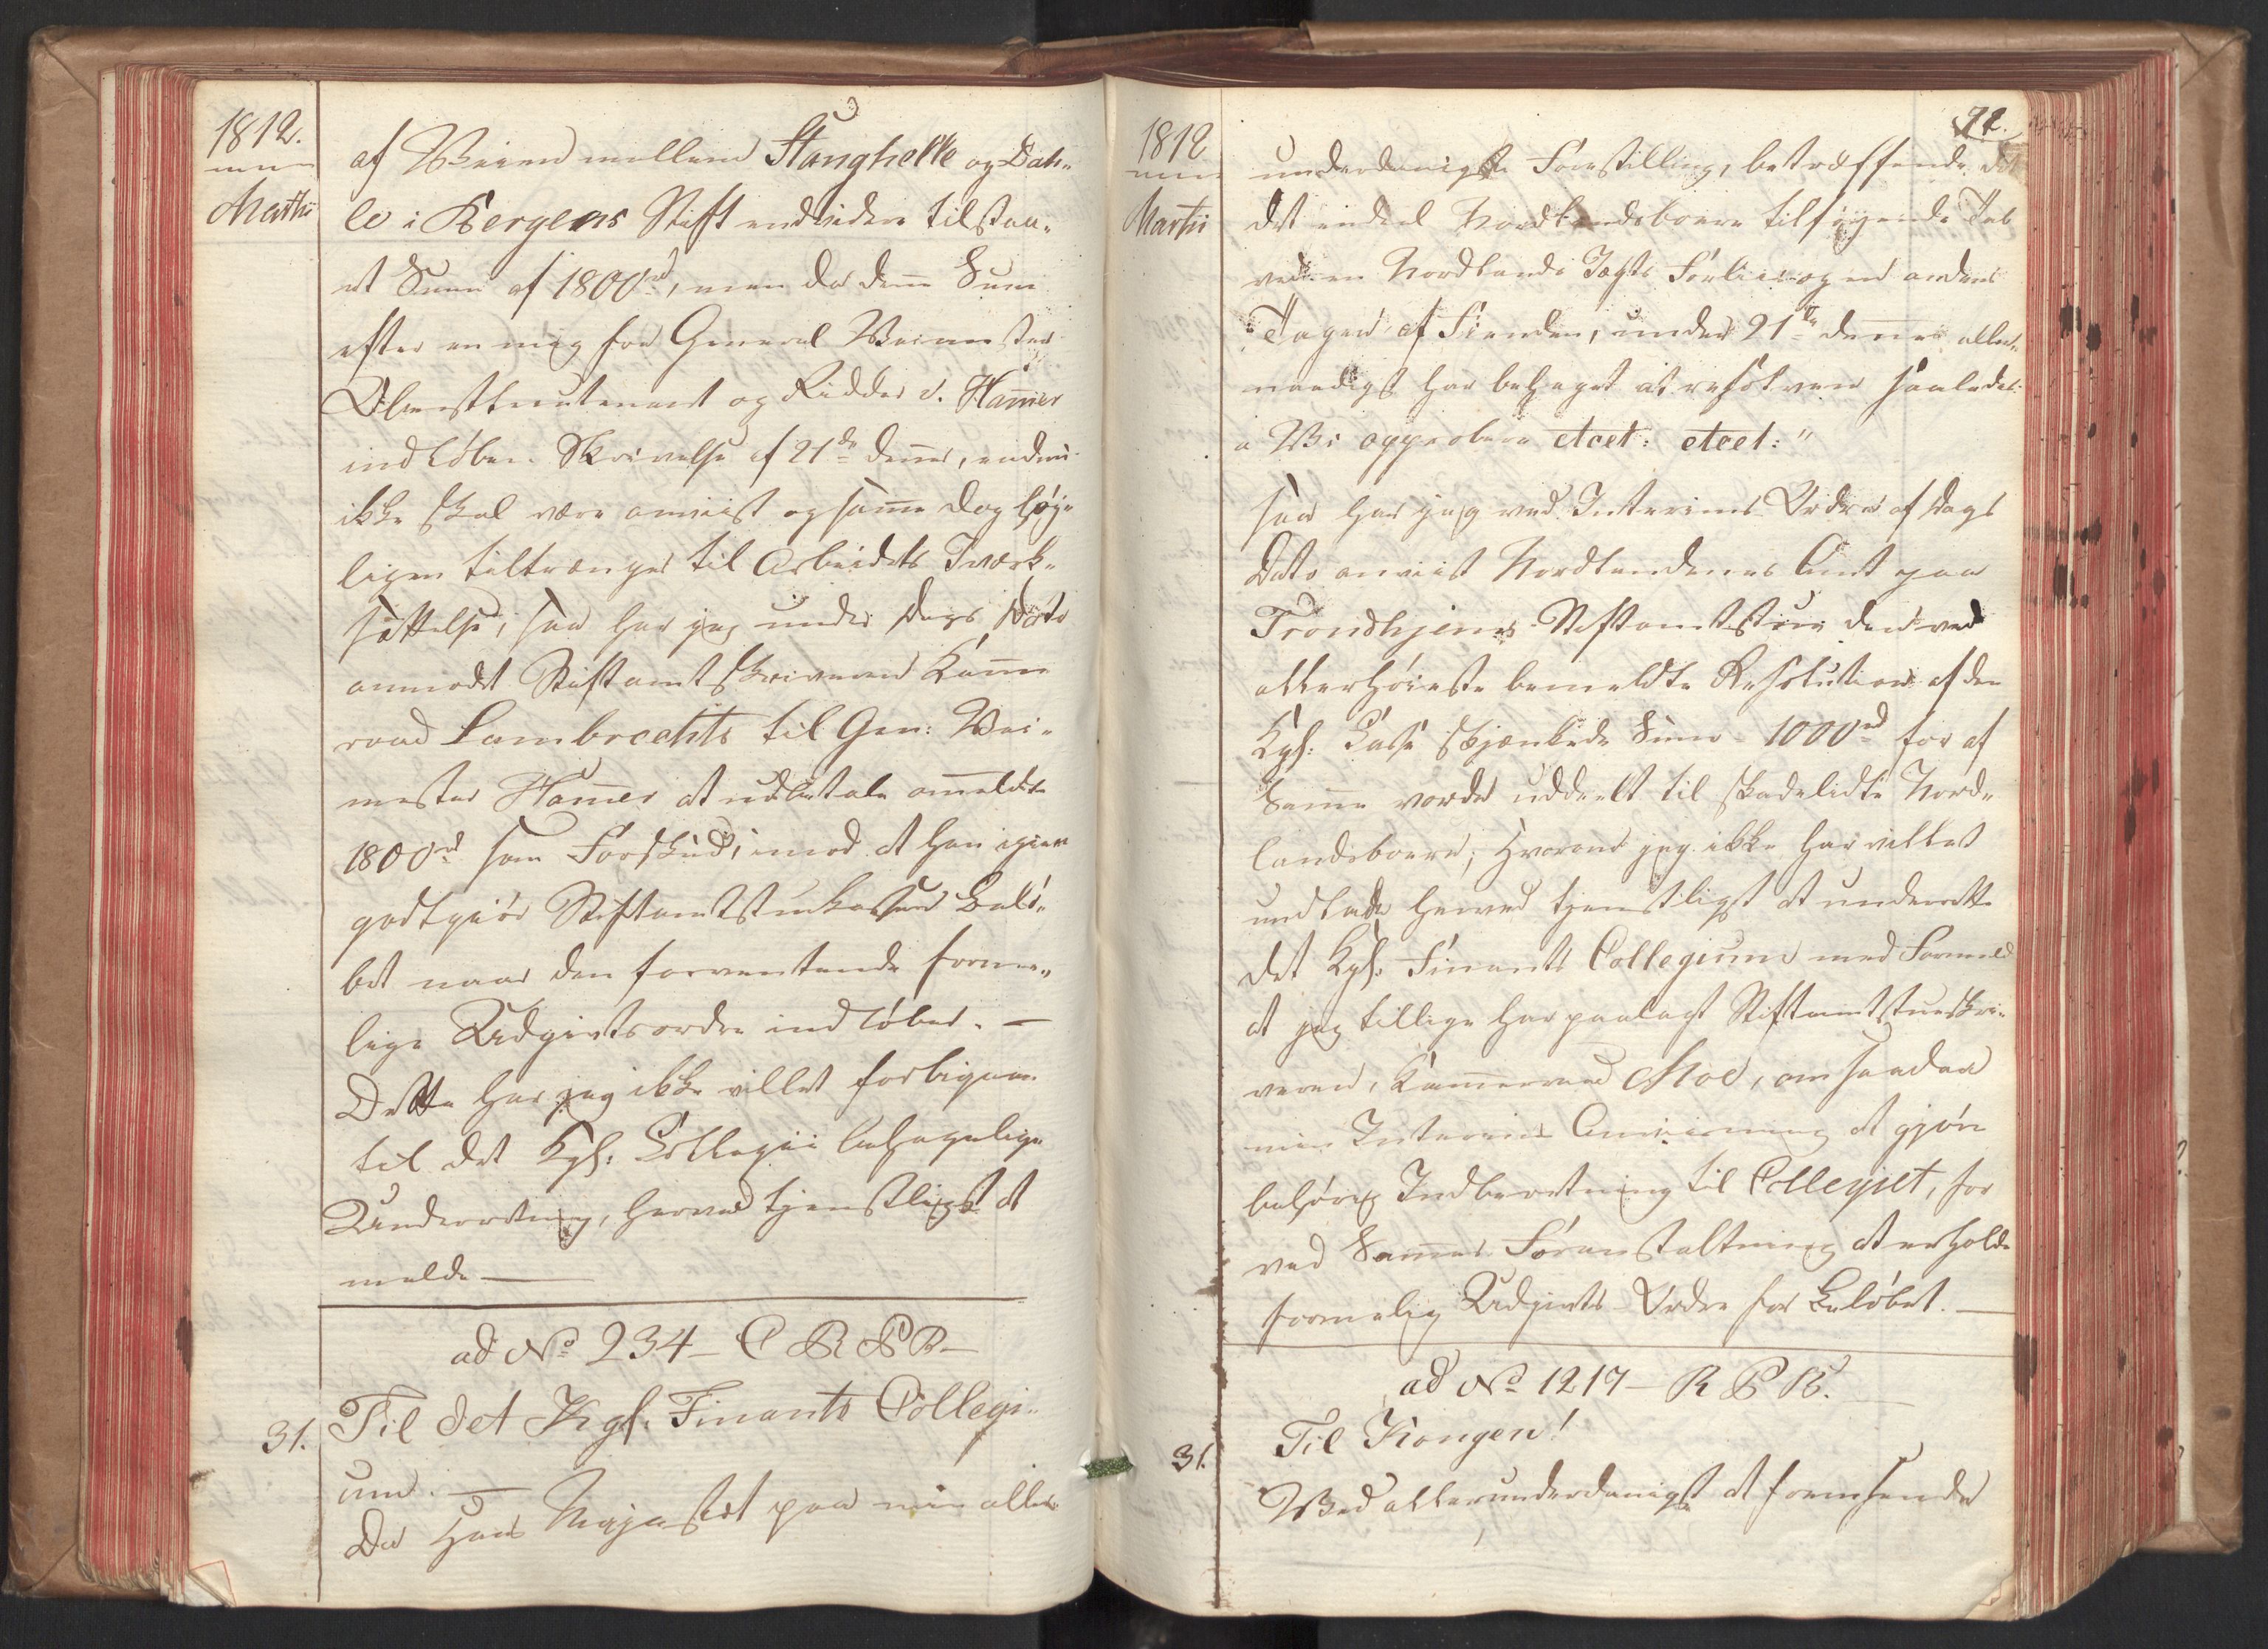 1812.
Martii
af Veien mellem Stanghelle og Dah-
le i Bergens Stift endvidere tilstaa-
et Sum af 1800rd, men da denne Sum
efter en mig fra General Veimester
Oberstlieutenant og Ridder v. Hamer
indløben Skrivelse af 21de dennes, endnu
ikke skal være anviist og samme dog høy-
ligen tiltrænges til Arbeidets Iværk-
sættelse, saa har jeg under Dags Dato
anmodet Stiftamtskriveren Kamer-
raad Lambrechts til Gen: Vei-
mester Hamer at udbetale ommeldte
1800rd som Forskud, imod at han igien
godtgiør Stiftamtstuekassen Belø-
bet naar den forventende forme-
lige Udgivtsordre indløber. —
Dette har jeg ikke villet forbigaae
til det Kgl: Collegii behagelige
Underretning, herved tjenstligst at
melde —
ad No 234 – C R P R –
31.
Til det Kgl. Finants Collegi-
um. —
Da Hans Majestæt paa min aller-
1812
Martii
72.
underdanigste Forestilling, betræffende det
det endeel Nordlandsboere tilføyende Tab
ved en Nordlands Jægts Forliis og en andens
Tagen af Fienden, under 21de dennes aller-
naadigst har behaget at resolvere saaledes:
"Vi approbere etcet: etcet:"
saa har jeg ved Interims Ordre af Dags
Dato anviist Nordlandenes Amt paa
Trondhjems Stiftamtstue den ved
allerhøieste bemeldte Resolution af den
Kgl: Casse skjænkede Sum 1000rd for af
Samme vorde uddeelt til skadelidte Nord-
landsboere; Hvorom jeg ikke har villet
undlade herved tjenstligst at underrette
det Kgl: Finants Collegium med Formeld
at jeg tillige har paalagt Stiftamtstueskri-
veren, Kammerraad Moe, om saadan
min Interims Anviisning at gjøre
behørig Indberetning til Collegiet, for
ved Sammes Foranstaltning at erholde
formelig Udgivts-Ordre for Beløbet. —
ad No 1217 – R P B.
31.
Til Kongen!
Ved allerunderdanigst at fremsende